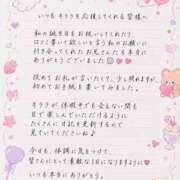 いつもキララを応援してくれる皆様へ
私の誕生日をお祝いしてくれたり、
口コミ書いて欲しいと言う私のお願いに
付き合ってくれたお兄さんたち本当に
ありがとうございました
改めてお礼が言いたくて、少し照れますが、
初めてお手紙を書いてみました。
キララが休暇中でも会えない間も
目で楽しんでもらえるように
たくさん日記を更新するので
見ていてくださいね♪
今日も、体調に気をつけて
皆さんにとって素敵な1日になりますように
いつも本当にありがとう。